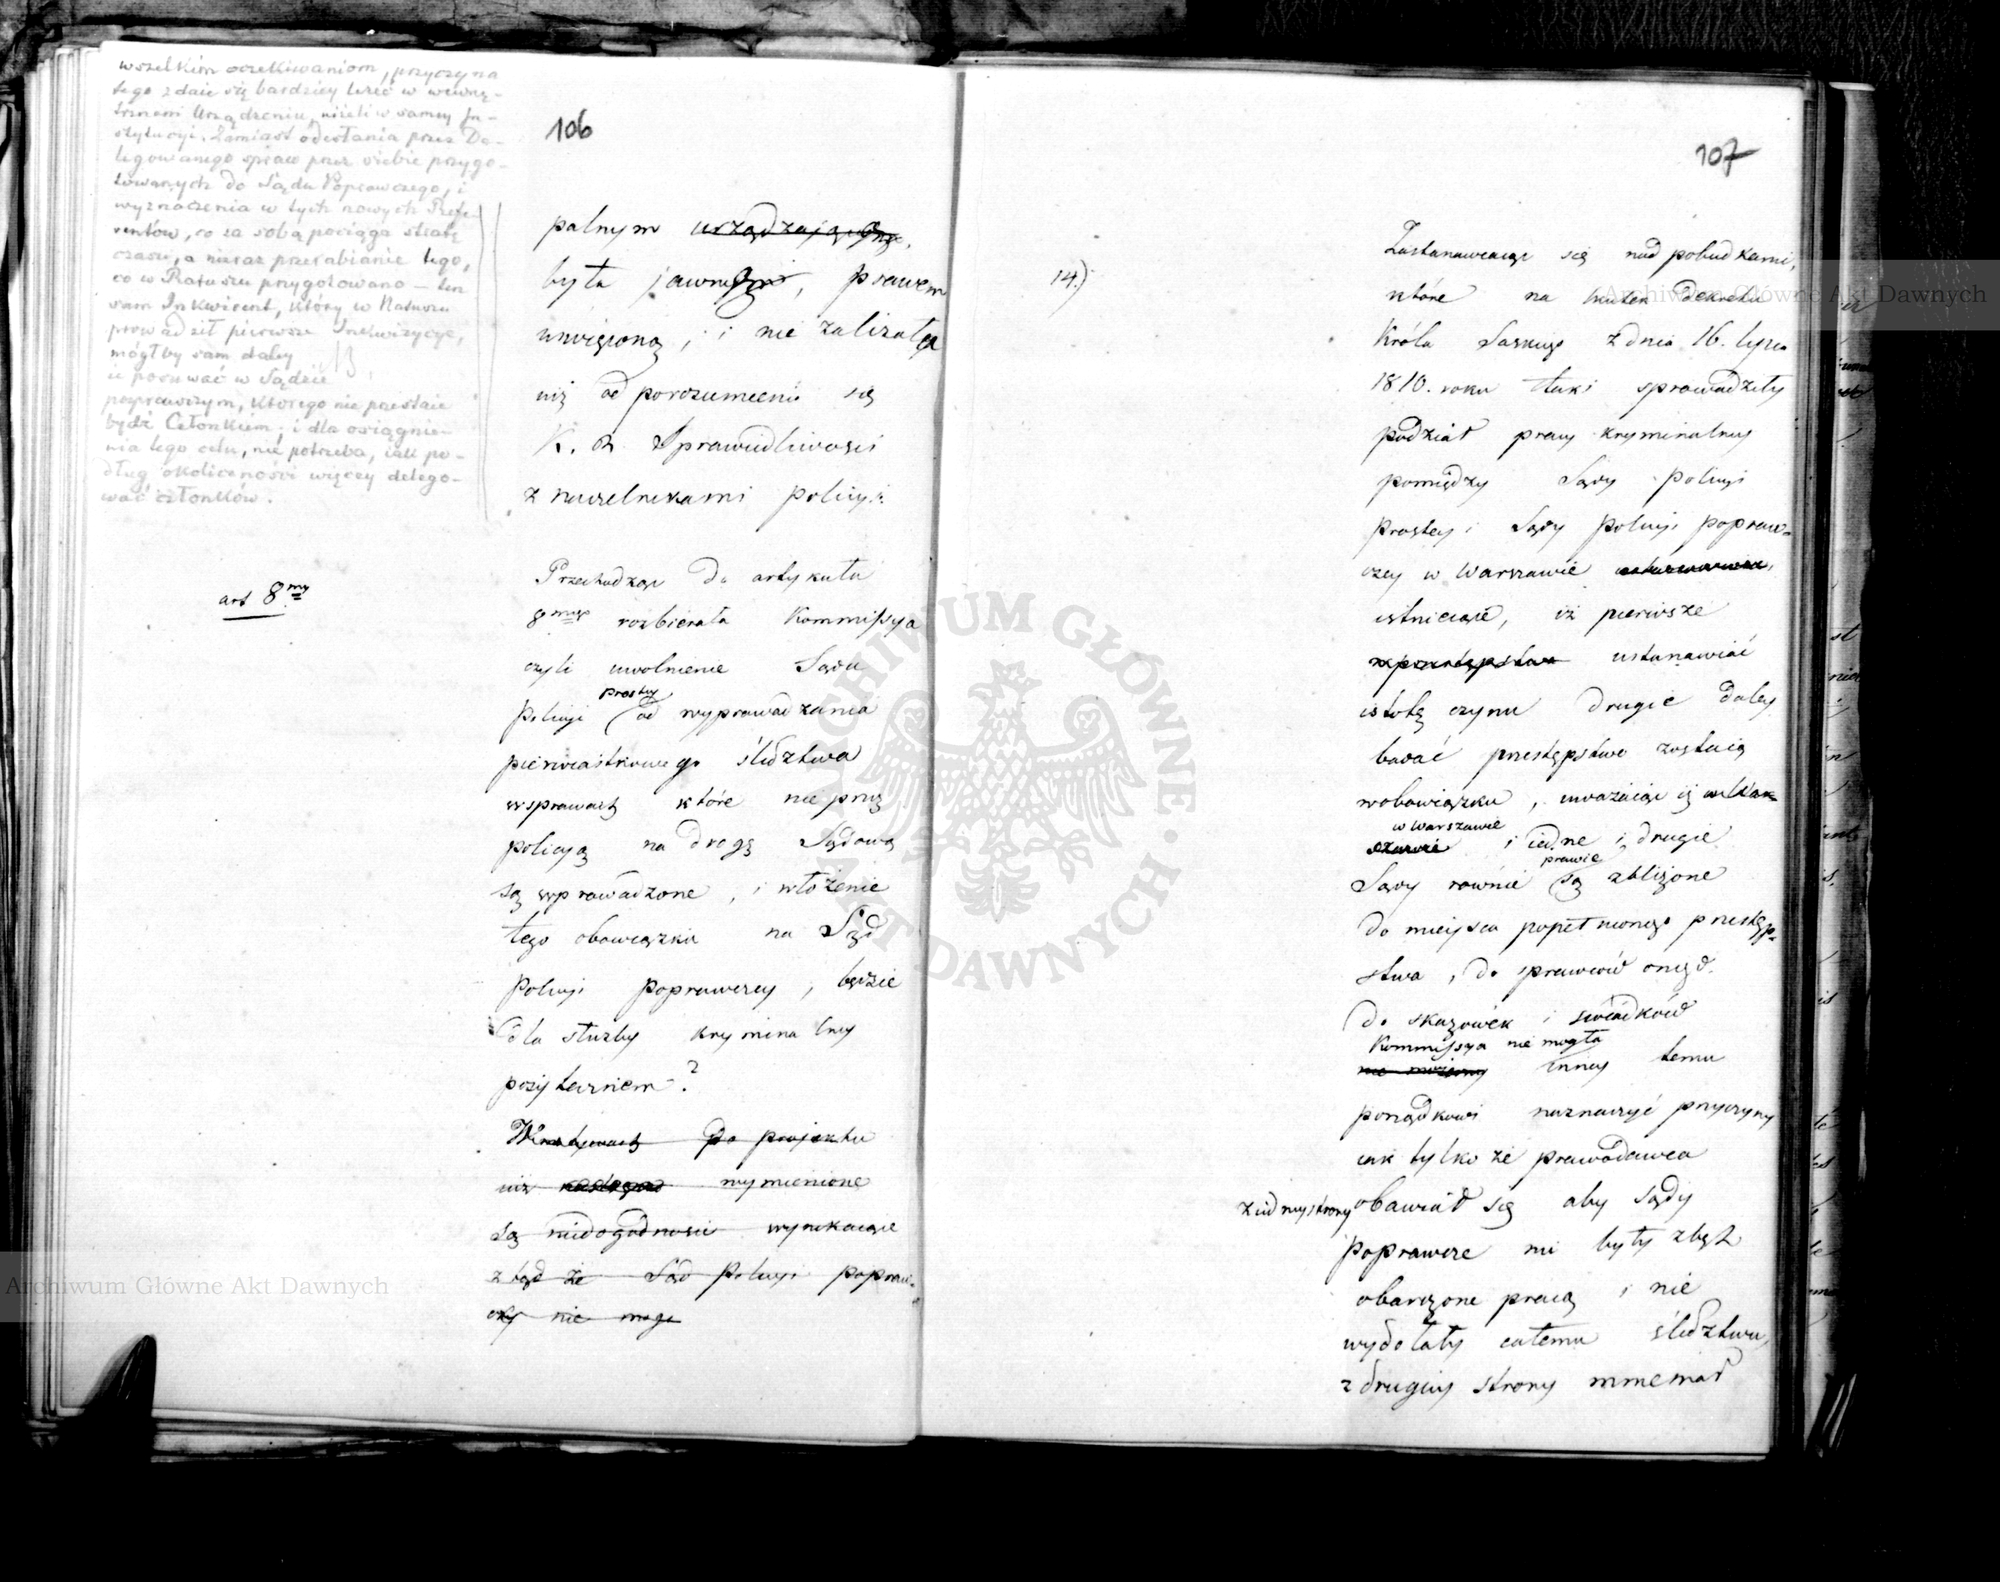 wszelkim oczekiwaniom, przyczyna
tego zdaie się bardziey leżeć w wewnę-
trznem Urządzeniu, niżeli w samey In-
stytucyi. Zamiast odesłania przez De-
legowanego spraw przez siebie przygo-
towanych do Sądu Poprawczego, i
wyznaczenia w tych nowych Refe-
rentów, co za sobą pociąga stratę
czasu, a nieraz przerabianie tego,
co w Ratuszu przygotowano — ten
sam Inkwirent, który w Ratuszu
prowadził pierwsze Inkwizycye,
mógłby sam daley
ie posuwać w Sądzie
poprawczym, którego nie przestaie
bydź Członkiem; i dla osiągnie-
nia tego celu, nie potrzeba, iak po-
dług okoliczności więcey delego-
wać członków.
art 8my
106
palnym urządzające
była jawne, prawem
umieioną, i nie zależała
niż od porozumienia się
K. R. Sprawiedliwości
z naczelnikami policyi
Przechodząc do artykułu
8mego rozbierała Kommissya
czyli uwolnienie Sądu
prostey
Policyi od wyprawadzania
pierwiastkowego śledztwa
w sprawach które nie przez
policyą na drogę Sądową
są wprowadzone, i włożenie
tego obowiązku na Sąd
Policyi poprawczey, będzie
dla służby kryminalney
pożytecznem?
W do projektu
niż wymienione
są niedogodności wynikaiące
ztąd że Sąd Policyi popraw-
czey nie mogą
107
14.)
Zastanawiaiąc się nad pobudkami,
które na skutek dekretu
Króla Saskiego z dnia 16. lipca
1810. roku taki sprowadziły
podział pracy kryminalney
pomiędzy Sądy Policyi
Prostey i Sądy Policyi popraw-
czey w Warszawie
istnieiące, iż pierwsze
ustanawiać
istotę czynu drugie daley
badać przestępstwo zostaią
w obowiązku, uważaiąc iż
w Warszawie
i iedne i drugie
prawie
Sądy rownie są zbliżone
do mieysca popełnionego przestęp-
stwa, do sprawców onego
do skazówek i świadków
Kommissya nie mogła
nie możemy inney temu
porządkowi naznaczyć przyczyny
iak tylko że prawodawca
z iedney strony obawiał się aby Sądy
poprawcze nie były zbyt
obarczone pracą i nie
wydołały całemu śledztwu,
z drugiey strony mniemał
Archiwum Główne Akt Dawnych
Archiwum Główne Akt Dawnych
ARCHIWUM GŁÓWNE AKT DAWNYCH